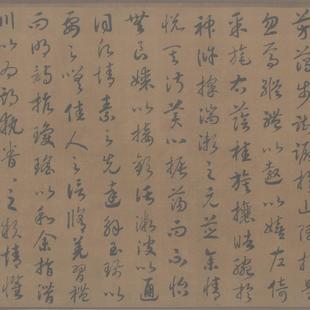 芳藹步踟躕於山隅於是
忽焉縱體以遨以嬉左倚
采旄右蔭桂旗攘皓腕於
神滸採湍瀨之玄芝余情
悅其淑美心振蕩而不怡
無良媒以接歡託微波以通
詞願情素之先達解玉珮以
要之嗟佳人之信脩羌習禮
而明詩抗瓊珶以和余指潛
川以為期執眷眷之款情懼